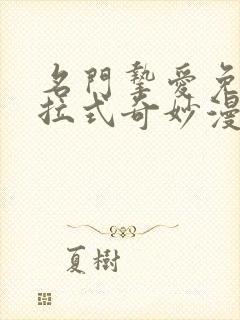 名門摯愛免
拉式奇妙漫
夏樹